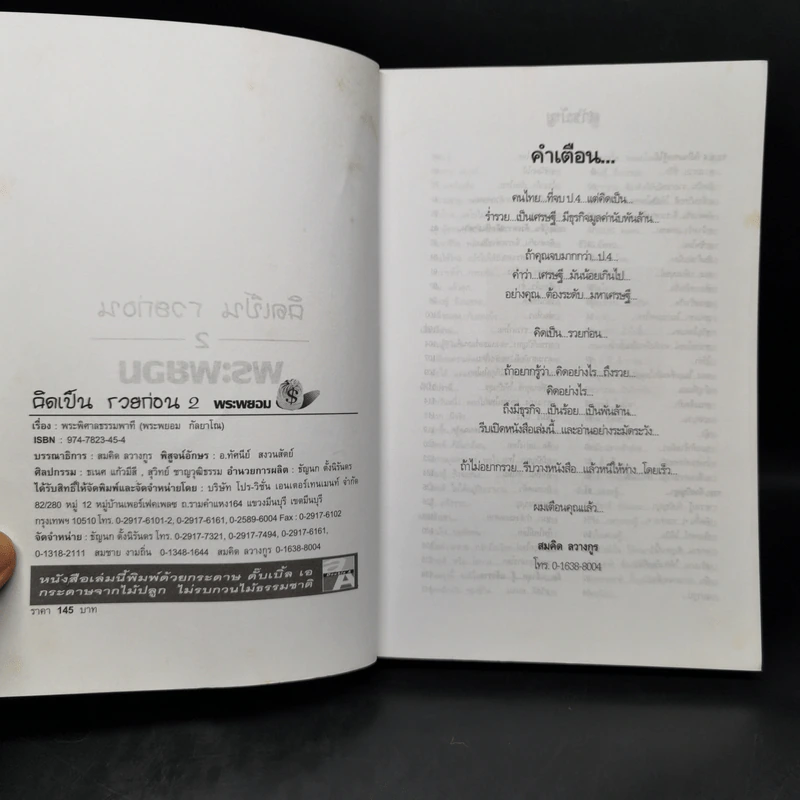 คิดเป็น รวยก่อน 2 พระพยอม
เรื่อง : พระพิศาลธรรมพาที (พระพยอม กัลยาโณ)
ISBN : 974-7823-45-4
บรรณาธิการ : สมคิด ลวางกูร พิสูจน์อักษร : อ.ทัศนีย์ สงวนสัตย์
ศิลปกรรม : ชเนศ แก้วมีสี , สุวิทย์ ชาญวุฒิธรรม อำนวยการผลิต : ธัญนก ตั้งนิรันดร
ได้รับสิทธิ์ให้จัดพิมพ์และจัดจำหน่ายโดย : บริษัท โปร-วิชั่น เอนเตอร์เทนเมนท์ จำกัด
82/280 หมู่ 12 หมู่บ้านเพอร์เฟคเพลซ ถ.รามคำแหง164 แขวงมีนบุรี เขตมีนบุรี
กรุงเทพฯ 10510 โทร. 0-2917-6101-2, 0-2917-6161, 0-2589-6004 Fax : 0-2917-6102
จัดจำหน่าย : ธัญนก ตั้งนิรันดร โทร. 0-2917-7321, 0-2917-7494, 0-2917-6161,
0-1318-2111 สมชาย งามถิ่น 0-1348-1644 สมคิด ลวางกูร 0-1638-8004
หนังสือเล่มนี้พิมพ์ด้วยกระดาษ ดั๊บเบิ้ล เอ
กระดาษจากไม้ปลูก ไม่รบกวนไม้ธรรมชาติ
ราคา 145 บาท
คำเตือน...
คนไทย...ที่จบ ป.4...แต่คิดเป็น...
ร่ำรวย...เป็นเศรษฐี...มีธุรกิจมูลค่านับพันล้าน...
ถ้าคุณจบมากกว่า...ป.4...
คำว่า...เศรษฐี...มันน้อยเกินไป...
อย่างคุณ...ต้องระดับ...มหาเศรษฐี...
คิดเป็น...รวยก่อน...
ถ้าอยากรู้ว่า...คิดอย่างไร...ถึงรวย...
คิดอย่างไร...
ถึงมีธุรกิจ...เป็นร้อย...เป็นพันล้าน...
รีบเปิดหนังสือเล่มนี้...และอ่านอย่างระมัดระวัง...
ถ้าไม่อยากรวย...รีบวางหนังสือ...แล้วหนีให้ห่าง...โดยเร็ว...
ผมเตือนคุณแล้ว...
สมคิด ลวางกูร
โทร. 0-1638-8004